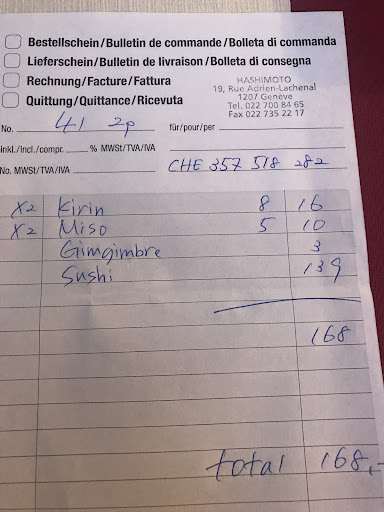 Bestellschein/Bulletin de commande/Bolleta di commanda
Lieferschein/Bulletin de livraison/Bolleta di consegna
Rechnung/Facture/Fattura
Quittung/Quittance/Ricevuta
HASHIMOTO
19, Rue Adrien-Lachenal
1207 Genève
Tel. 022 700 84 65
Fax 022 735 22 17
No. 41 2p für/pour/per
inkl./incl./compr. % MWSt/TVA/IVA
No. MWSt/TVA/IVA CHE 357 518 282
x2 Kirin 8 16
x2 Miso 5 10
Gimgimbre 3
Sushi 139
168
total 168.-